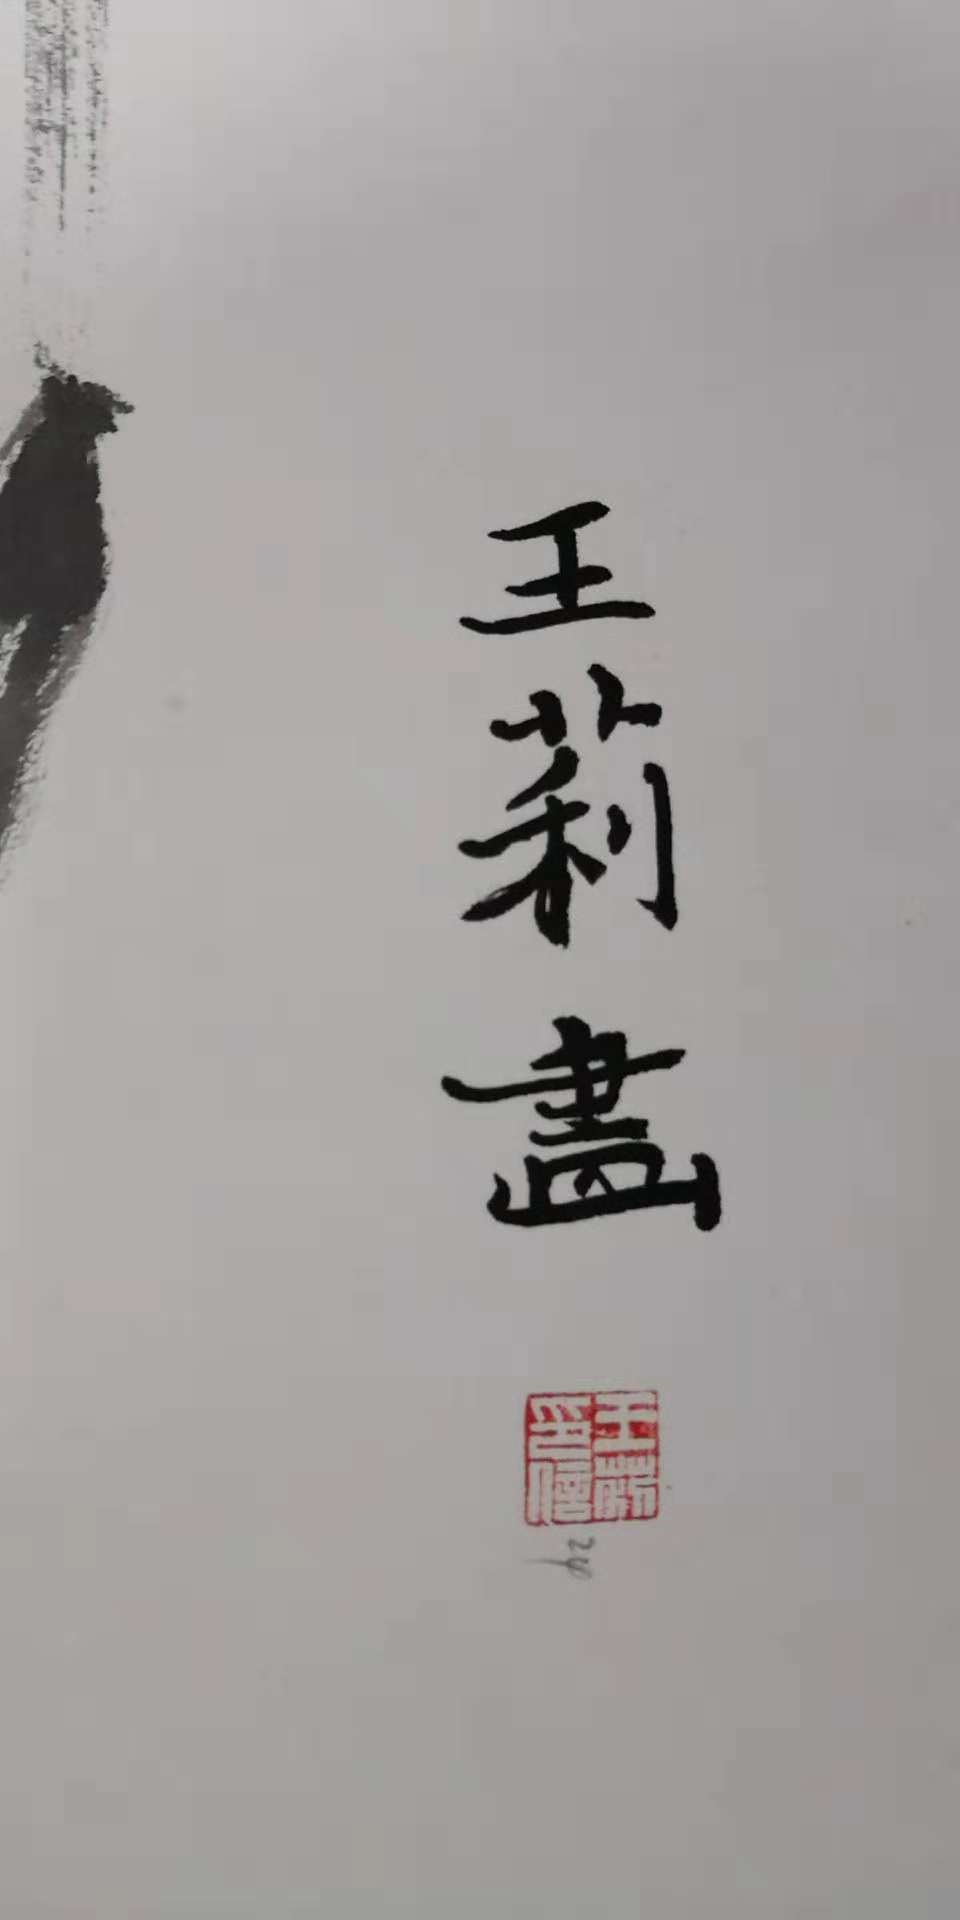 王莉畫
王莉
印信
24